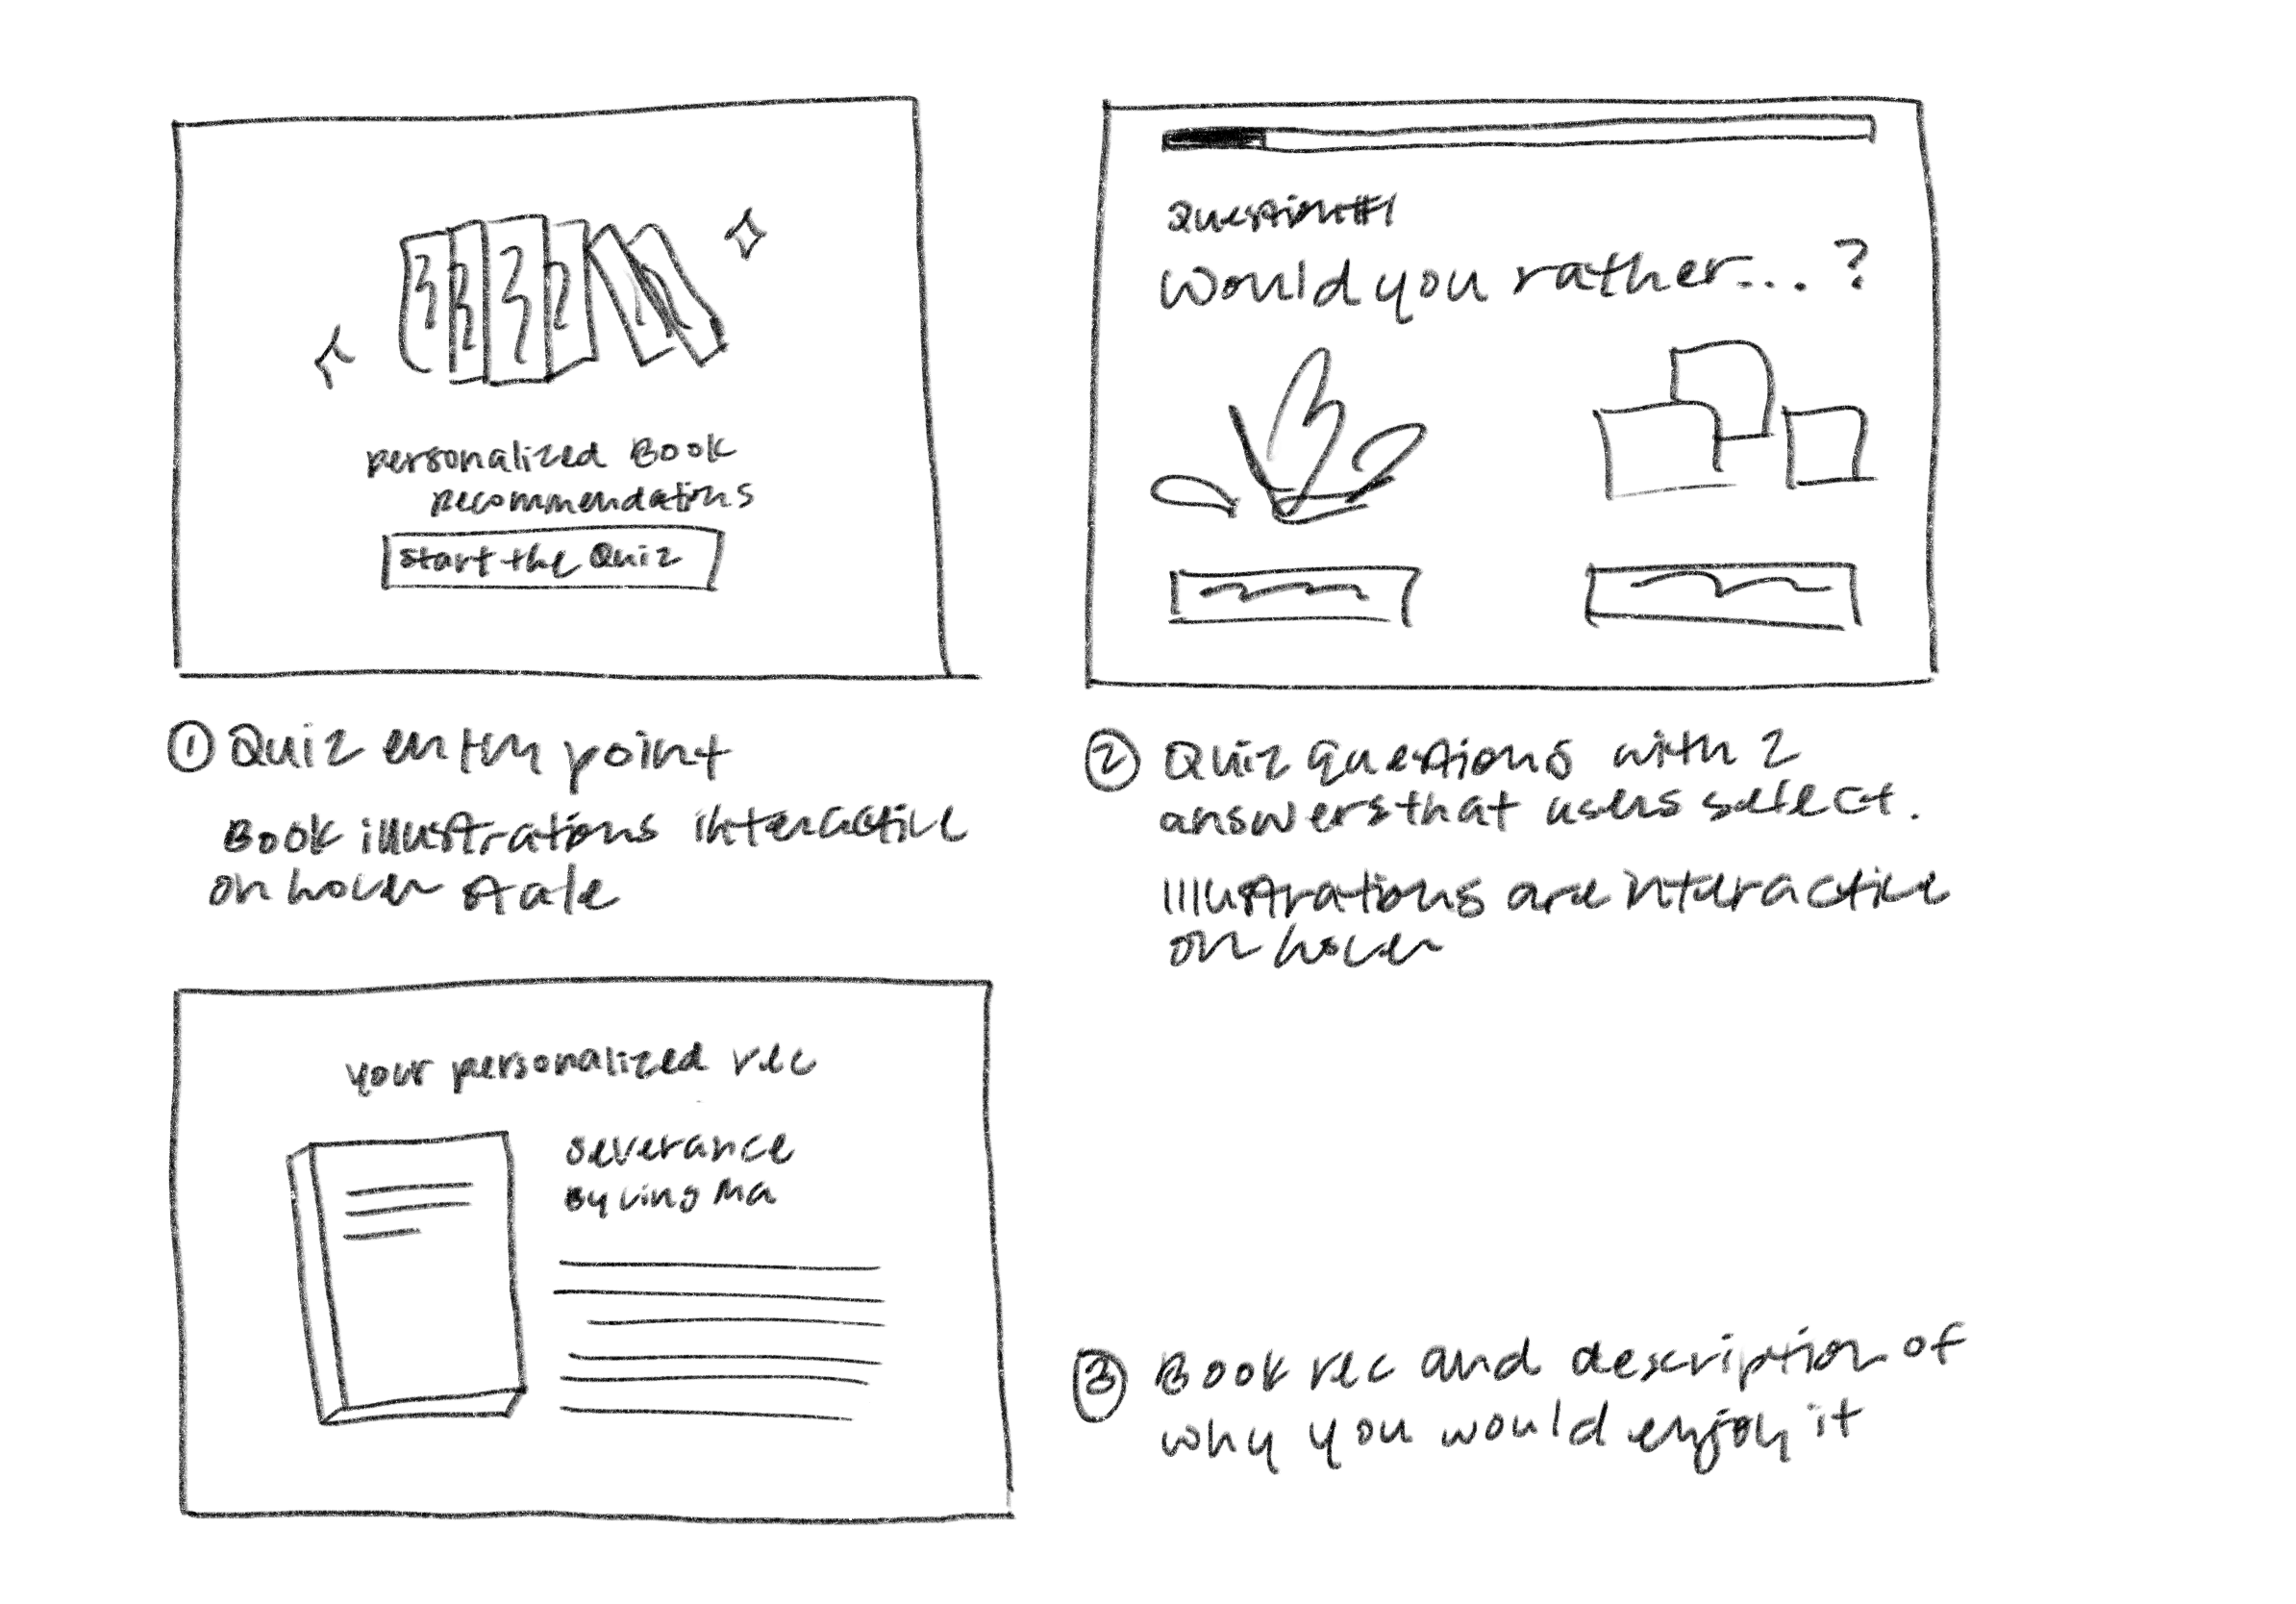 personalized Book
recommendations
start the Quiz
① Quiz entry point
Book illustrations interactive
on hover state
Question #1
Would you rather... ?
② Quiz questions with 2
answers that users select.
Illustrations are interactive
on hover
your personalized rec
Severance
By Ling Ma
③ Book rec and description of
why you would enjoy it